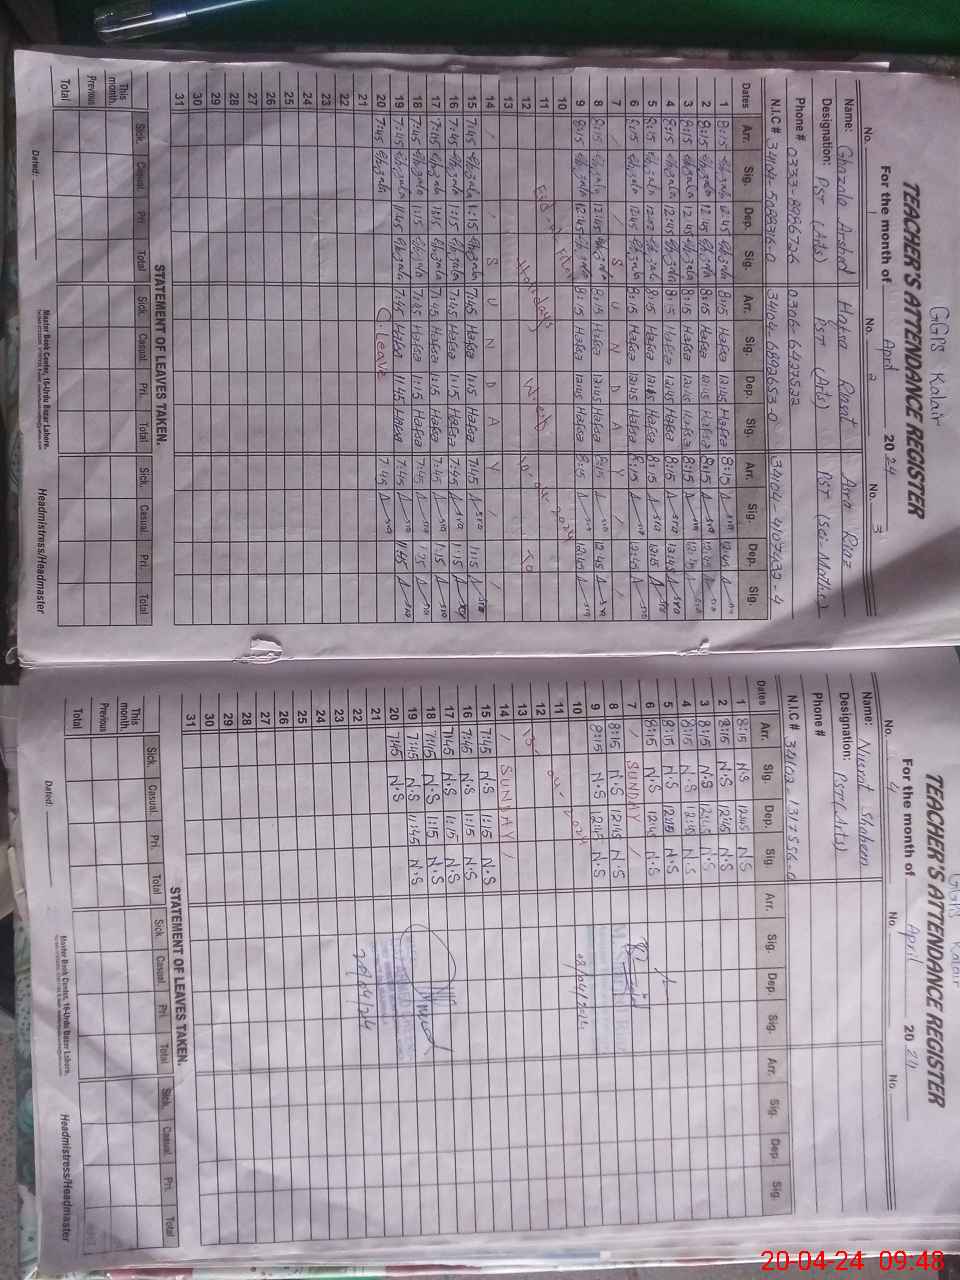 GGPS Kalair
TEACHER'S ATTENDANCE REGISTER
For the month of April 2024
No. 1 No. 2 No. 3
Name: Ghazala Arshad Hafsa Azra Riaz
Designation: PST (Arts) PST (Arts) PST (Sci-Math)
Phone # 0333-8986706 0306-6427522
N.I.C #
Dates Arr. Sig. Dep. Sig. Arr. Sig. Dep. Sig. Arr. Sig. Dep. Sig.
1 8:15 Ghazala 12:45 Ghazala 8:15 Hafsa 12:45 Hafsa 8:15 Azra 12:45 Azra
2 8:15 Ghazala 12:45 Ghazala 8:15 Hafsa 12:45 Hafsa 8:15 Azra 12:45 Azra
3 8:15 Ghazala 12:45 Ghazala 8:15 Hafsa 12:45 Hafsa 8:15 Azra 12:45 Azra
4 8:15 Ghazala 12:45 Ghazala 8:15 Hafsa 12:45 Hafsa 8:15 Azra 12:45 Azra
5 8:15 Ghazala 12:45 Ghazala 8:15 Hafsa 12:45 Hafsa 8:15 Azra 12:45 Azra
6 8:15 Ghazala 12:45 Ghazala 8:15 Hafsa 12:45 Hafsa 8:15 Azra 12:45 Azra
7 / / S U N D A Y / /
8 8:15 Ghazala 12:45 Ghazala 8:15 Hafsa 12:45 Hafsa 8:15 Azra 12:45 Azra
9 8:15 Ghazala 12:45 Ghazala 8:15 Hafsa 12:45 Hafsa 8:15 Azra 12:45 Azra
10 Eid-ul-Fitar
11 Holidays W.e.f 10-04-2024
12 to
13
14 / / S U N D A Y / /
15 7:45 Ghazala 1:15 Ghazala 7:45 Hafsa 1:15 Hafsa 7:45 Azra 1:15 Azra
16 7:45 Ghazala 1:15 Ghazala 7:45 Hafsa 1:15 Hafsa 7:45 Azra 1:15 Azra
17 7:45 Ghazala 1:15 Ghazala 7:45 Hafsa 1:15 Hafsa 7:45 Azra 1:15 Azra
18 7:45 Ghazala 1:15 Ghazala 7:45 Hafsa 1:15 Hafsa 7:45 Azra 1:15 Azra
19 7:45 Ghazala 11:45 Ghazala 7:45 Hafsa 11:45 Hafsa 7:45 Azra 11:45 Azra
20 7:45 Ghazala C. Leave 7:45 Azra
21
22
23
24
25
26
27
28
29
30
31
STATEMENT OF LEAVES TAKEN.
Sick. Casual. Pri. Total Sick. Casual. Pri. Total Sick. Casual. Pri. Total
This month.
Previous
Total
Dated:
Master Book Center, 16-Urdu Bazar Lahore.
Headmistress/Headmaster
GGPS Kalair
TEACHER'S ATTENDANCE REGISTER
For the month of April 2024
No. 4 No. No.
Name: Nusrat Shaheen
Designation: PST(Arts)
Phone #
N.I.C #
Dates Arr. Sig. Dep. Sig. Arr. Sig. Dep. Sig. Arr. Sig. Dep. Sig.
1 8:15 N.S 12:45 N.S
2 8:15 N.S 12:45 N.S
3 8:15 N.S 12:45 N.S
4 8:15 N.S 12:45 N.S
5 8:15 N.S 12:45 N.S
6 8:15 N.S 12:45 N.S
7 / SUNDAY /
8 8:15 N.S 12:45 N.S
9 8:15 N.S 12:45 N.S
10
11
12
13
14 / SUNDAY /
15 7:45 N.S 1:15 N.S
16 7:45 N.S 1:15 N.S
17 7:45 N.S 1:15 N.S
18 7:45 N.S 1:15 N.S
19 7:45 N.S 11:45 N.S
20 7:45 N.S
21
22
23
24
25
26
27
28
29
30
31
STATEMENT OF LEAVES TAKEN.
Sick. Casual. Pri. Total Sick. Casual. Pri. Total Sick. Casual Pri. Total
This month.
Previous
Total
Dated:
Master Book Center, 16-Urdu Bazar Lahore.
Headmistress/Headmaster
20-04-24 09:48